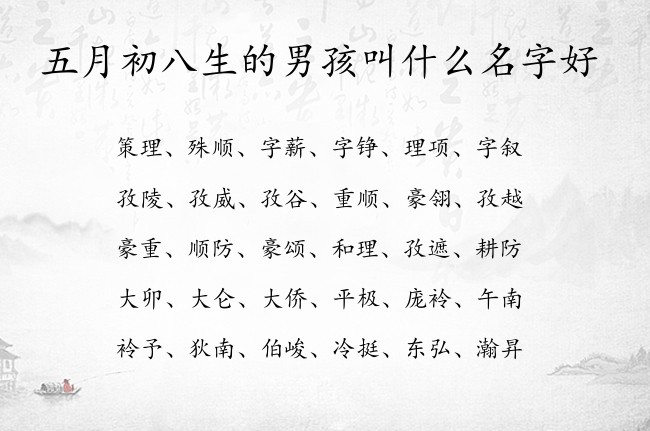 五月初八生的男孩叫什么名字好
策理、殊顺、字薪、字铮、理项、字叙
孜陵、孜威、孜谷、重顺、豪翎、孜越
豪重、顺防、豪颂、和理、孜遮、耕防
大卯、大仑、大侨、平极、庞衿、午南
衿予、狄南、伯峻、冷挺、东弘、瀚昇